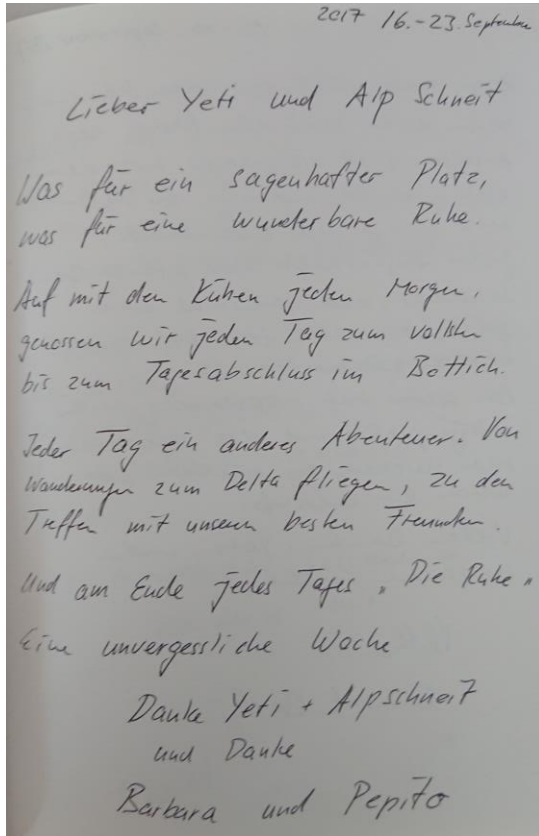 2017 16.-23. September
Lieber Yeti und Alp Schneit
Was für ein sagenhafter Platz,
was für eine wunderbare Ruhe.
Auf mit den Kühen jeden Morgen,
genossen wir jeden Tag zum vollsten
bis zum Tagesabschluss im Bottich.
Jeder Tag ein anderes Abenteuer. Von
Wanderungen zum Delta fliegen, zu den
Treffen mit unseren besten Freunden.
Und am Ende jedes Tages „Die Ruhe"
Eine unvergessliche Woche
Danke Yeti + Alpschneit
und Danke
Barbara und Pepito